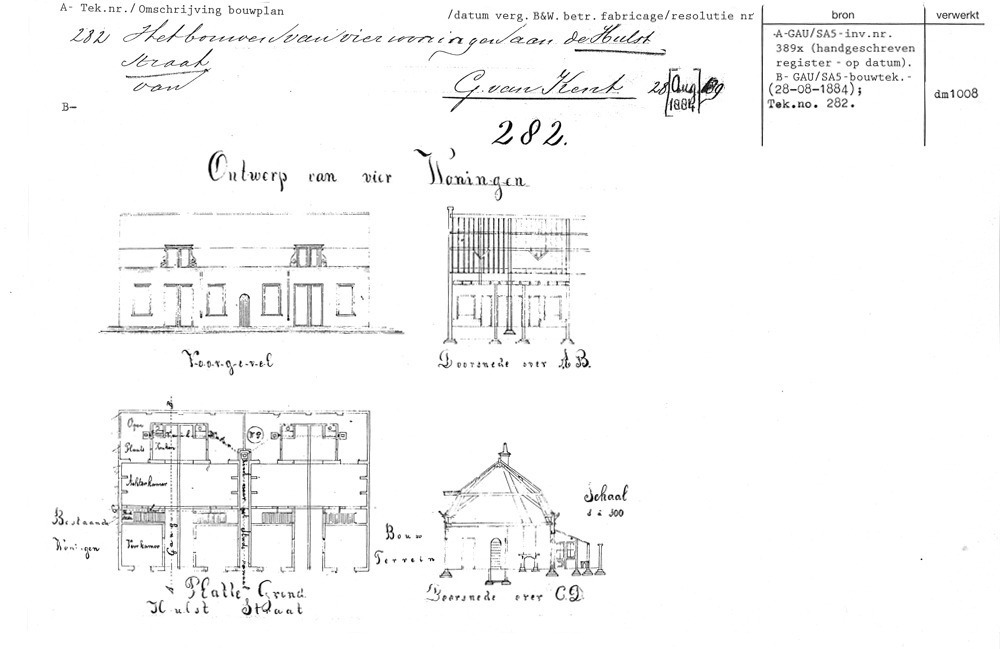 A- Tek.nr./Omschrijving bouwplan
/datum verg. B&W. betr. fabricage/resolutie nr
bron
verwerkt
282 Het bouwen van vier woningen aan de Hulst
straat
van G. van Kent 28 Aug 1884
B-
A-GAU/SA5-inv.nr.
389x (handgeschreven
register - op datum).
B- GAU/SA5-bouwtek.-
(28-08-1884);
Tek.no. 282.
dm1008
282.
Ontwerp van vier Woningen
Voorgevel
Doorsnede over A B.
Open
Plaats
Keuken
Achterkamer
Voorkamer
Gang
Bestaande
Woningen
Bouw
Terrein
Platte Grond
Hulst Straat
Schaal
1 à 100
Doorsnede over C.D.